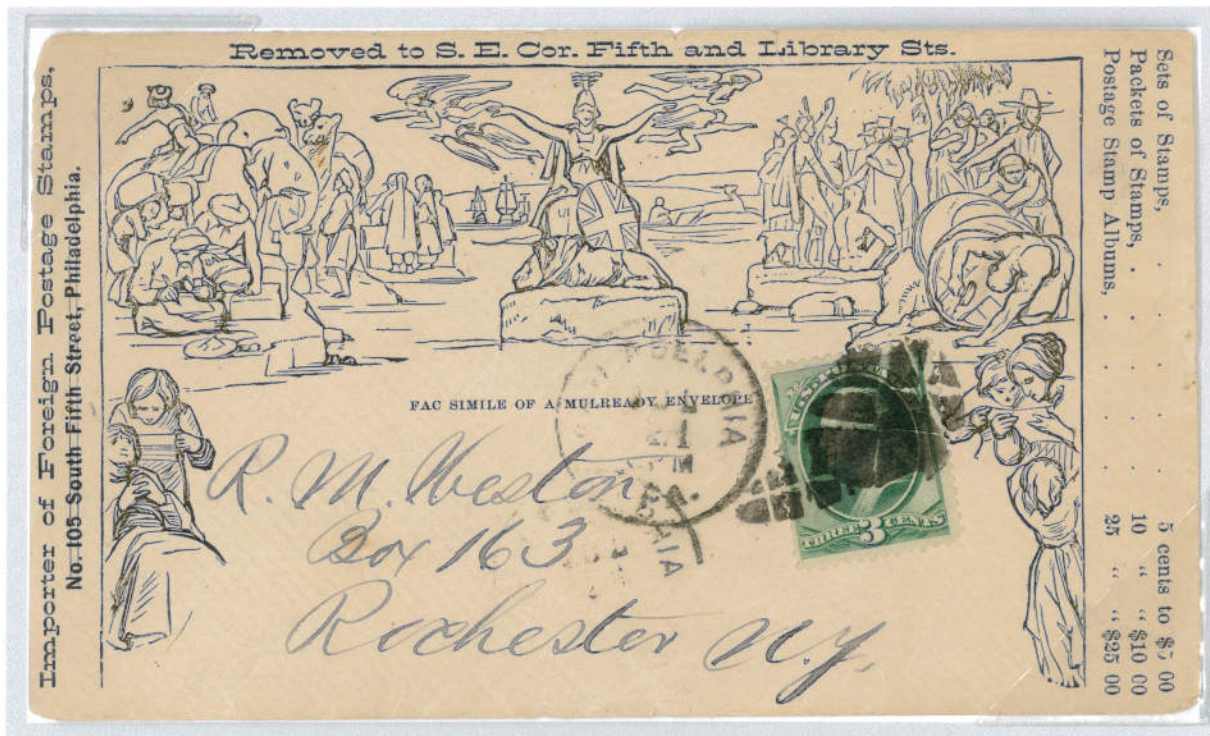 Removed to S. E. Cor. Fifth and Library Sts.
Importer of Foreign Postage Stamps,
No. 105 South Fifth Street, Philadelphia.
Sets of Stamps, . . . . . 5 cents to $5 00
Packets of Stamps, . . . . . 10 “ “ $10 00
Postage Stamp Albums, . . . . 25 “ “ $25 00
FAC SIMILE OF A MULREADY ENVELOPE
PA.
THREE 3 CENTS
R. M. Weston
Box 163
Rochester N.Y.